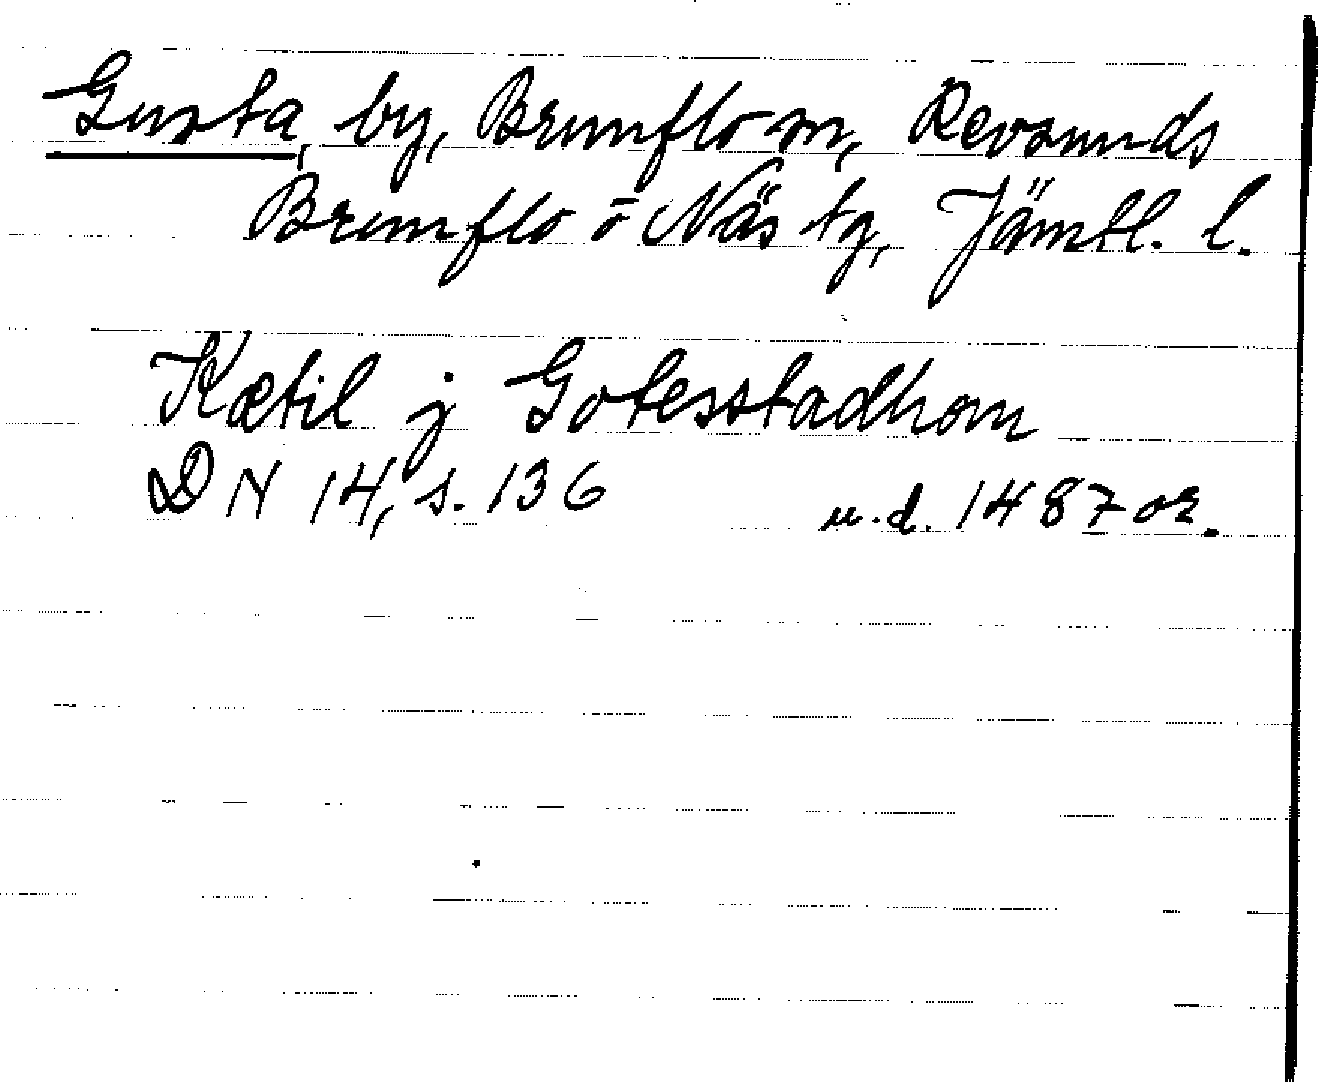 Gusta, by, Brunflo sn, Revsunds
Brunflo o Näs tg, Jämtl. l.
Kætil j Gotesstadhom
DN 14, s. 136 u.d. 1487 or.